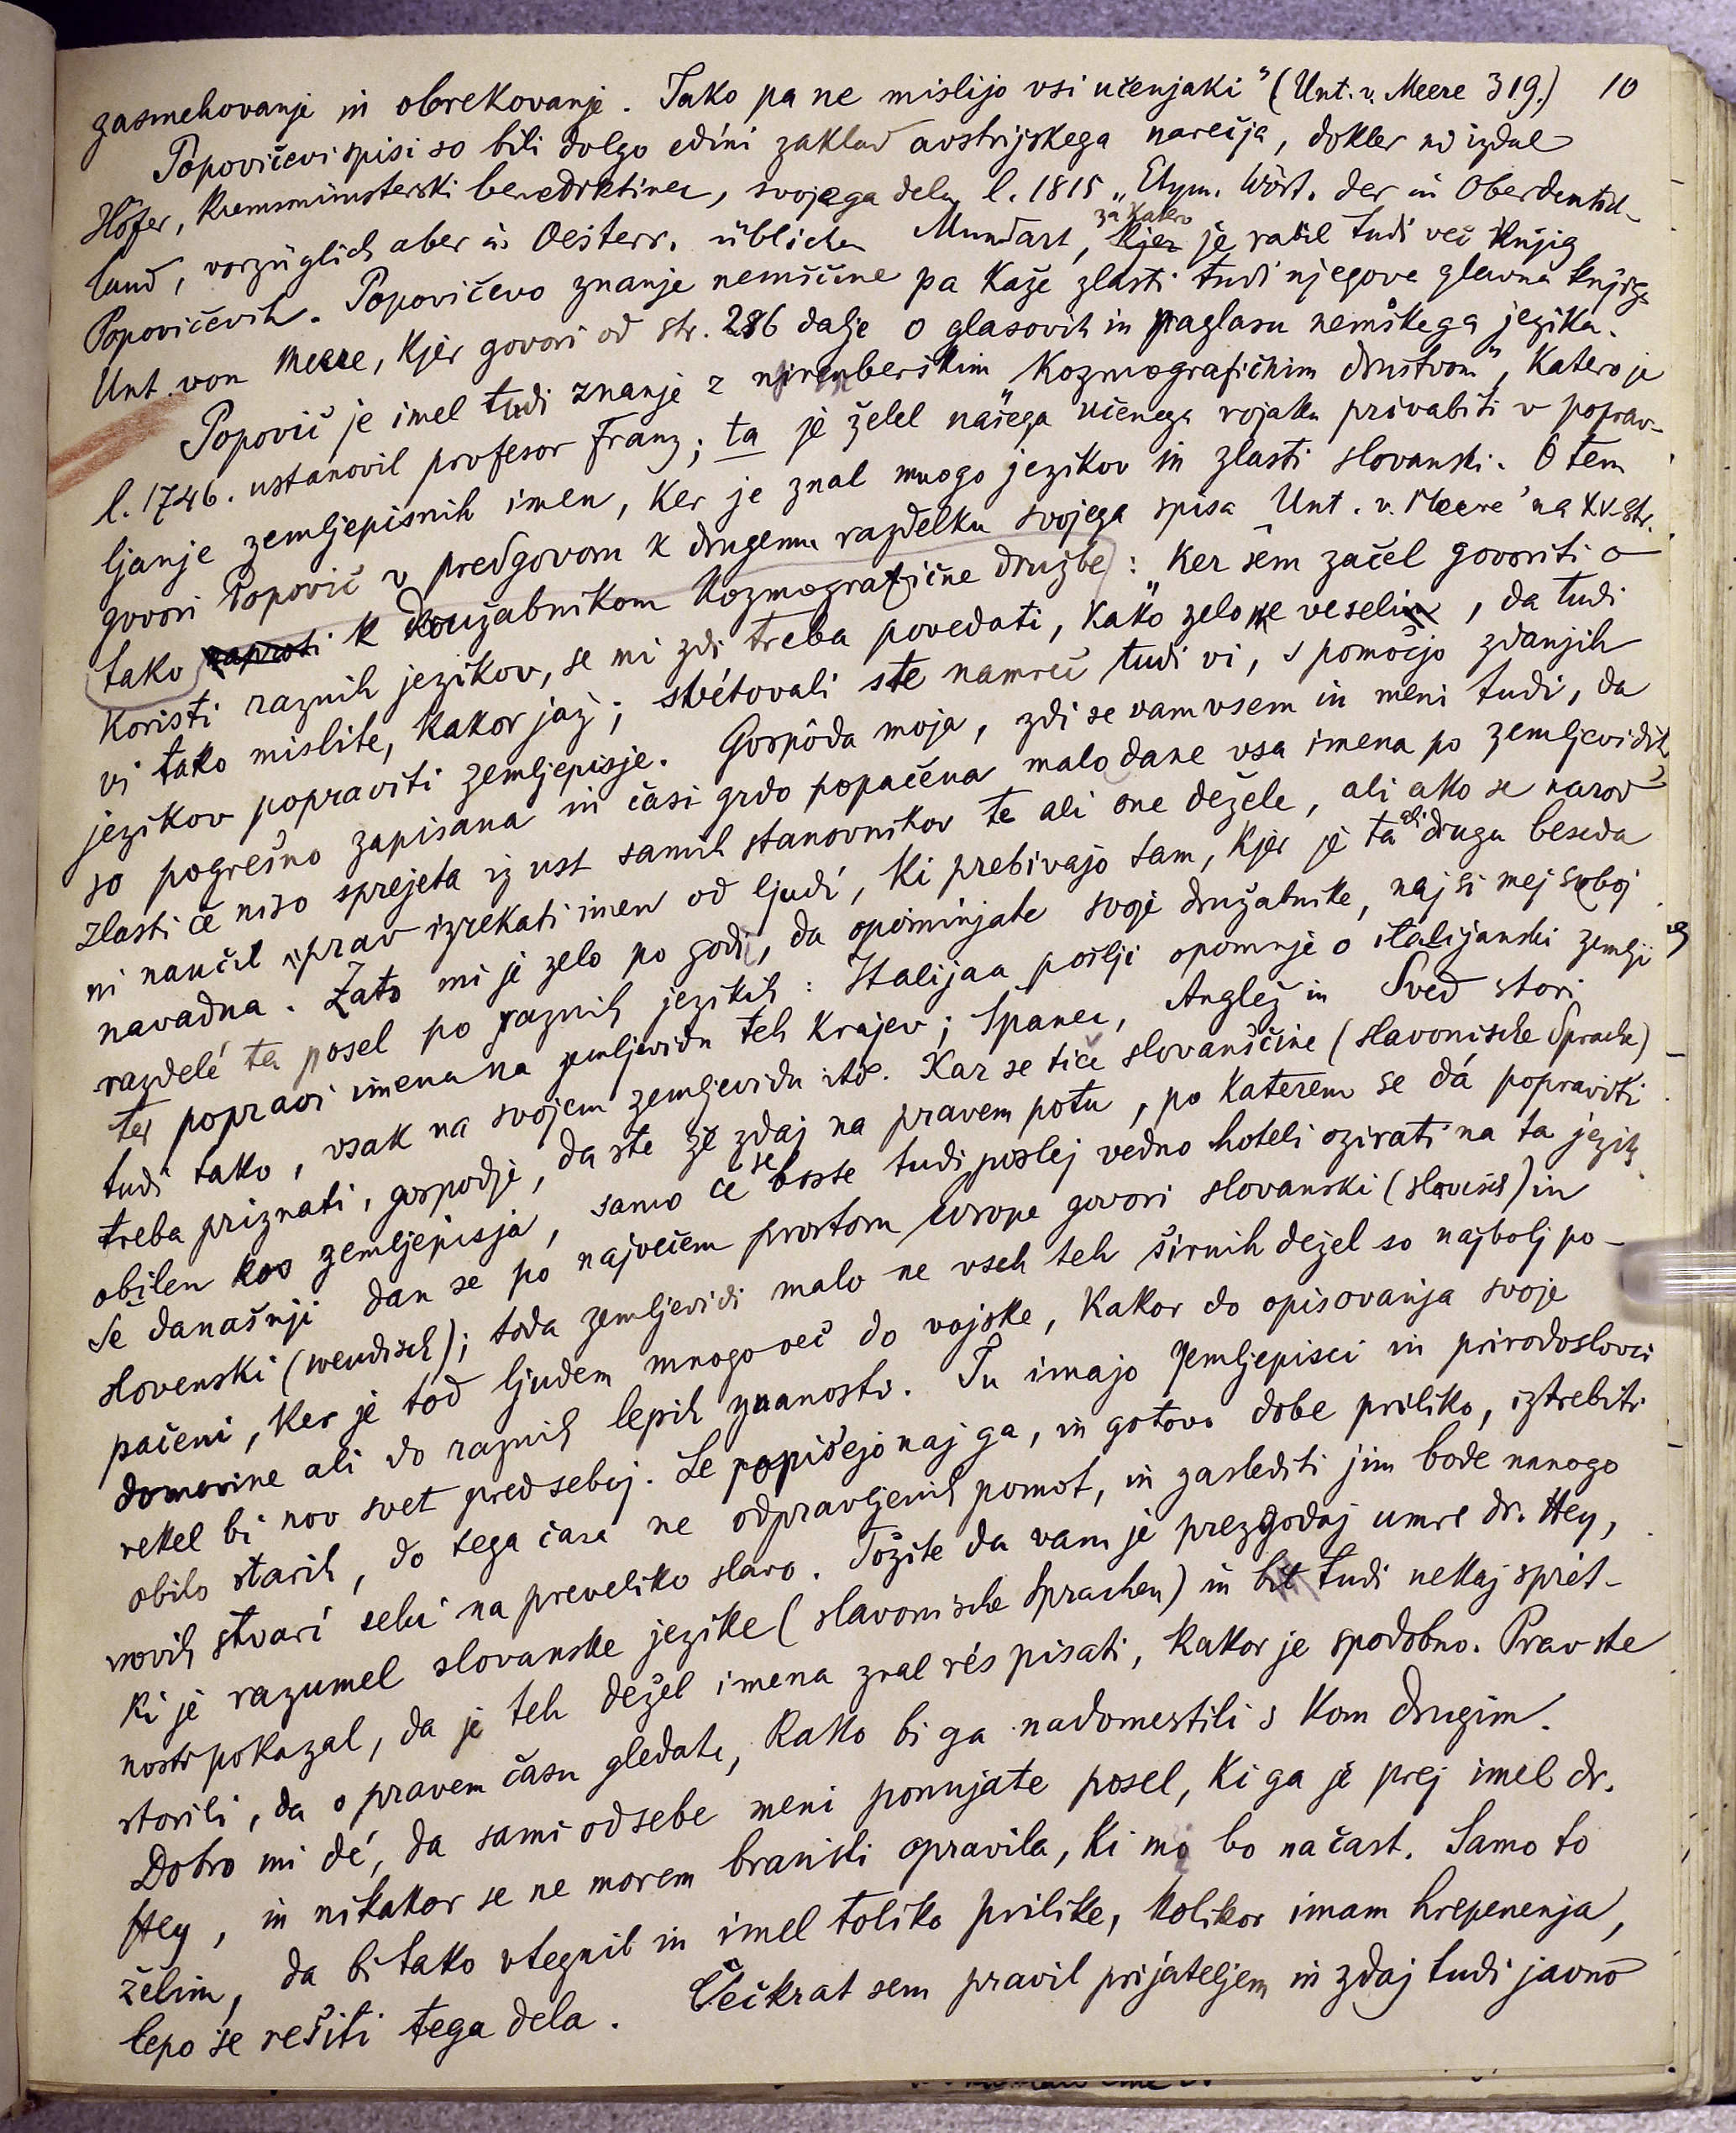 zasmehovanje in obrekovanje. Tako pa ne mislijo vsi učenjaki" (Unt. v. Meere 319.) 10
Popovičevi spisi so bili dolgo edini zaklad avstrijskega narečja, dokler ni izdal
Höfer, Kremsmünsterski benediktinec, svojega dela l. 1815 „Etym. Wört. der in Oberdeutsch-
land, vorzüglich aber in Oesterr. üblichen Mundart, za katero kjer je rabil tudi več knjig
Popovičevih. Popovičevo znanje nemščine pa kaže zlasti tudi njegova glavna knjiga
Unt. von Meere, kjer govori od str. 286 dalje o glasovih in praglasu nemškega jezika.
Popovič je imel tudi znanje z nirenberškim „Kozmografičnim društvom", katero je
l. 1746. ustanovil profesor Franz; ta je želel našega učenega rojaka privabiti v poprav-
ljanje zemljepisnih imen, ker je znal mnogo jezikov in zlasti slovanski. O tem
govori Popovič v predgovoru k drugemu razdelku svojega spisa „Unt. v. Meere" na XV. str.
tako naproti k družabnikom Kozmografične družbe: „Ker sem začel govoriti o
koristi raznih jezikov, se mi zdi treba povedati, kako zelo me veseli, da tudi
vi tako mislite, kakor jaz; svétovali ste namreč tudi vi, s pomočjo zdanjih
jezikov popraviti zemljepisje. Gospôda moja, zdi se vam vsem in meni tudi, da
so pogrešno zapisana in časi grdo popačena malo dane vsa imena po zemljevidih,
zlasti če niso sprejeta iz ust samih stanovnikov te ali one dežele, ali ako se narod
ni naučil prav izrekati imen od ljudí, ki prebivajo tam, kjer je ta ali druga beseda
navadna. Zato mi je zelo po godi, da opominjate svoje družabnike, naj si mej seboj
razdelé ta posel po raznih jezikih: Italijan pošlji opomnje o italijanski zemlji
ter popravi imena na zemljevidu teh krajev; Španec, Anglež in Šved stori
tudi tako, vsak na svojem zemljevidu itd. Kar se tiče slovanščine (slavonische Sprache)
treba priznati, gospodje, da ste že zdaj na pravem potu, po katerem se dá popraviti
obilen kos zemljepisja, samo če se boste tudi poslej vedno hoteli ozirati na ta jezik.
Še današnji dan se po največem prostoru Evrope govori slovanski (slavisch) in
slovenski (wendisch); toda zemljevidi malo ne vseh teh širnih dežel so najbolj po-
pačeni, ker je tod ljudem mnogo več do vojske, kakor do opisovanja svoje
domovine ali do raznih lepih znanosti. Tu imajo zemljepisci in prirodoslovci
rekel bi nov svet pred seboj. Le popišejo naj ga, in gotovo dobe priliko, iztrebiti
obilo starih, do tega časa ne odpravljenih pomot, in zaslediti jim bode mnogo
novih stvari sebi na preveliko slavo. Tožite da vam je prezgodaj umrl dr. Hey,
ki je razumel slovanske jezike (slavonische Sprachen) in bil tudi nekaj sprét-
nosti pokazal, da je teh dežel imena znal rés pisati, kakor je spodobno. Prav ste
storili, da o pravem času gledate, kako bi ga nadomestili s kom drugim.
Dobro mi dé, da sami od sebe meni ponujate posel, ki ga je prej imel dr.
Hey, in nikakor se ne morem braniti opravila, ki mi bo na čast. Samo to
želim, da bi tako vtegnil in imel toliko prilike, kolikor imam hrepenenja,
lepo se rešiti tega dela. Večkrat sem pravil prijateljem in zdaj tudi javno